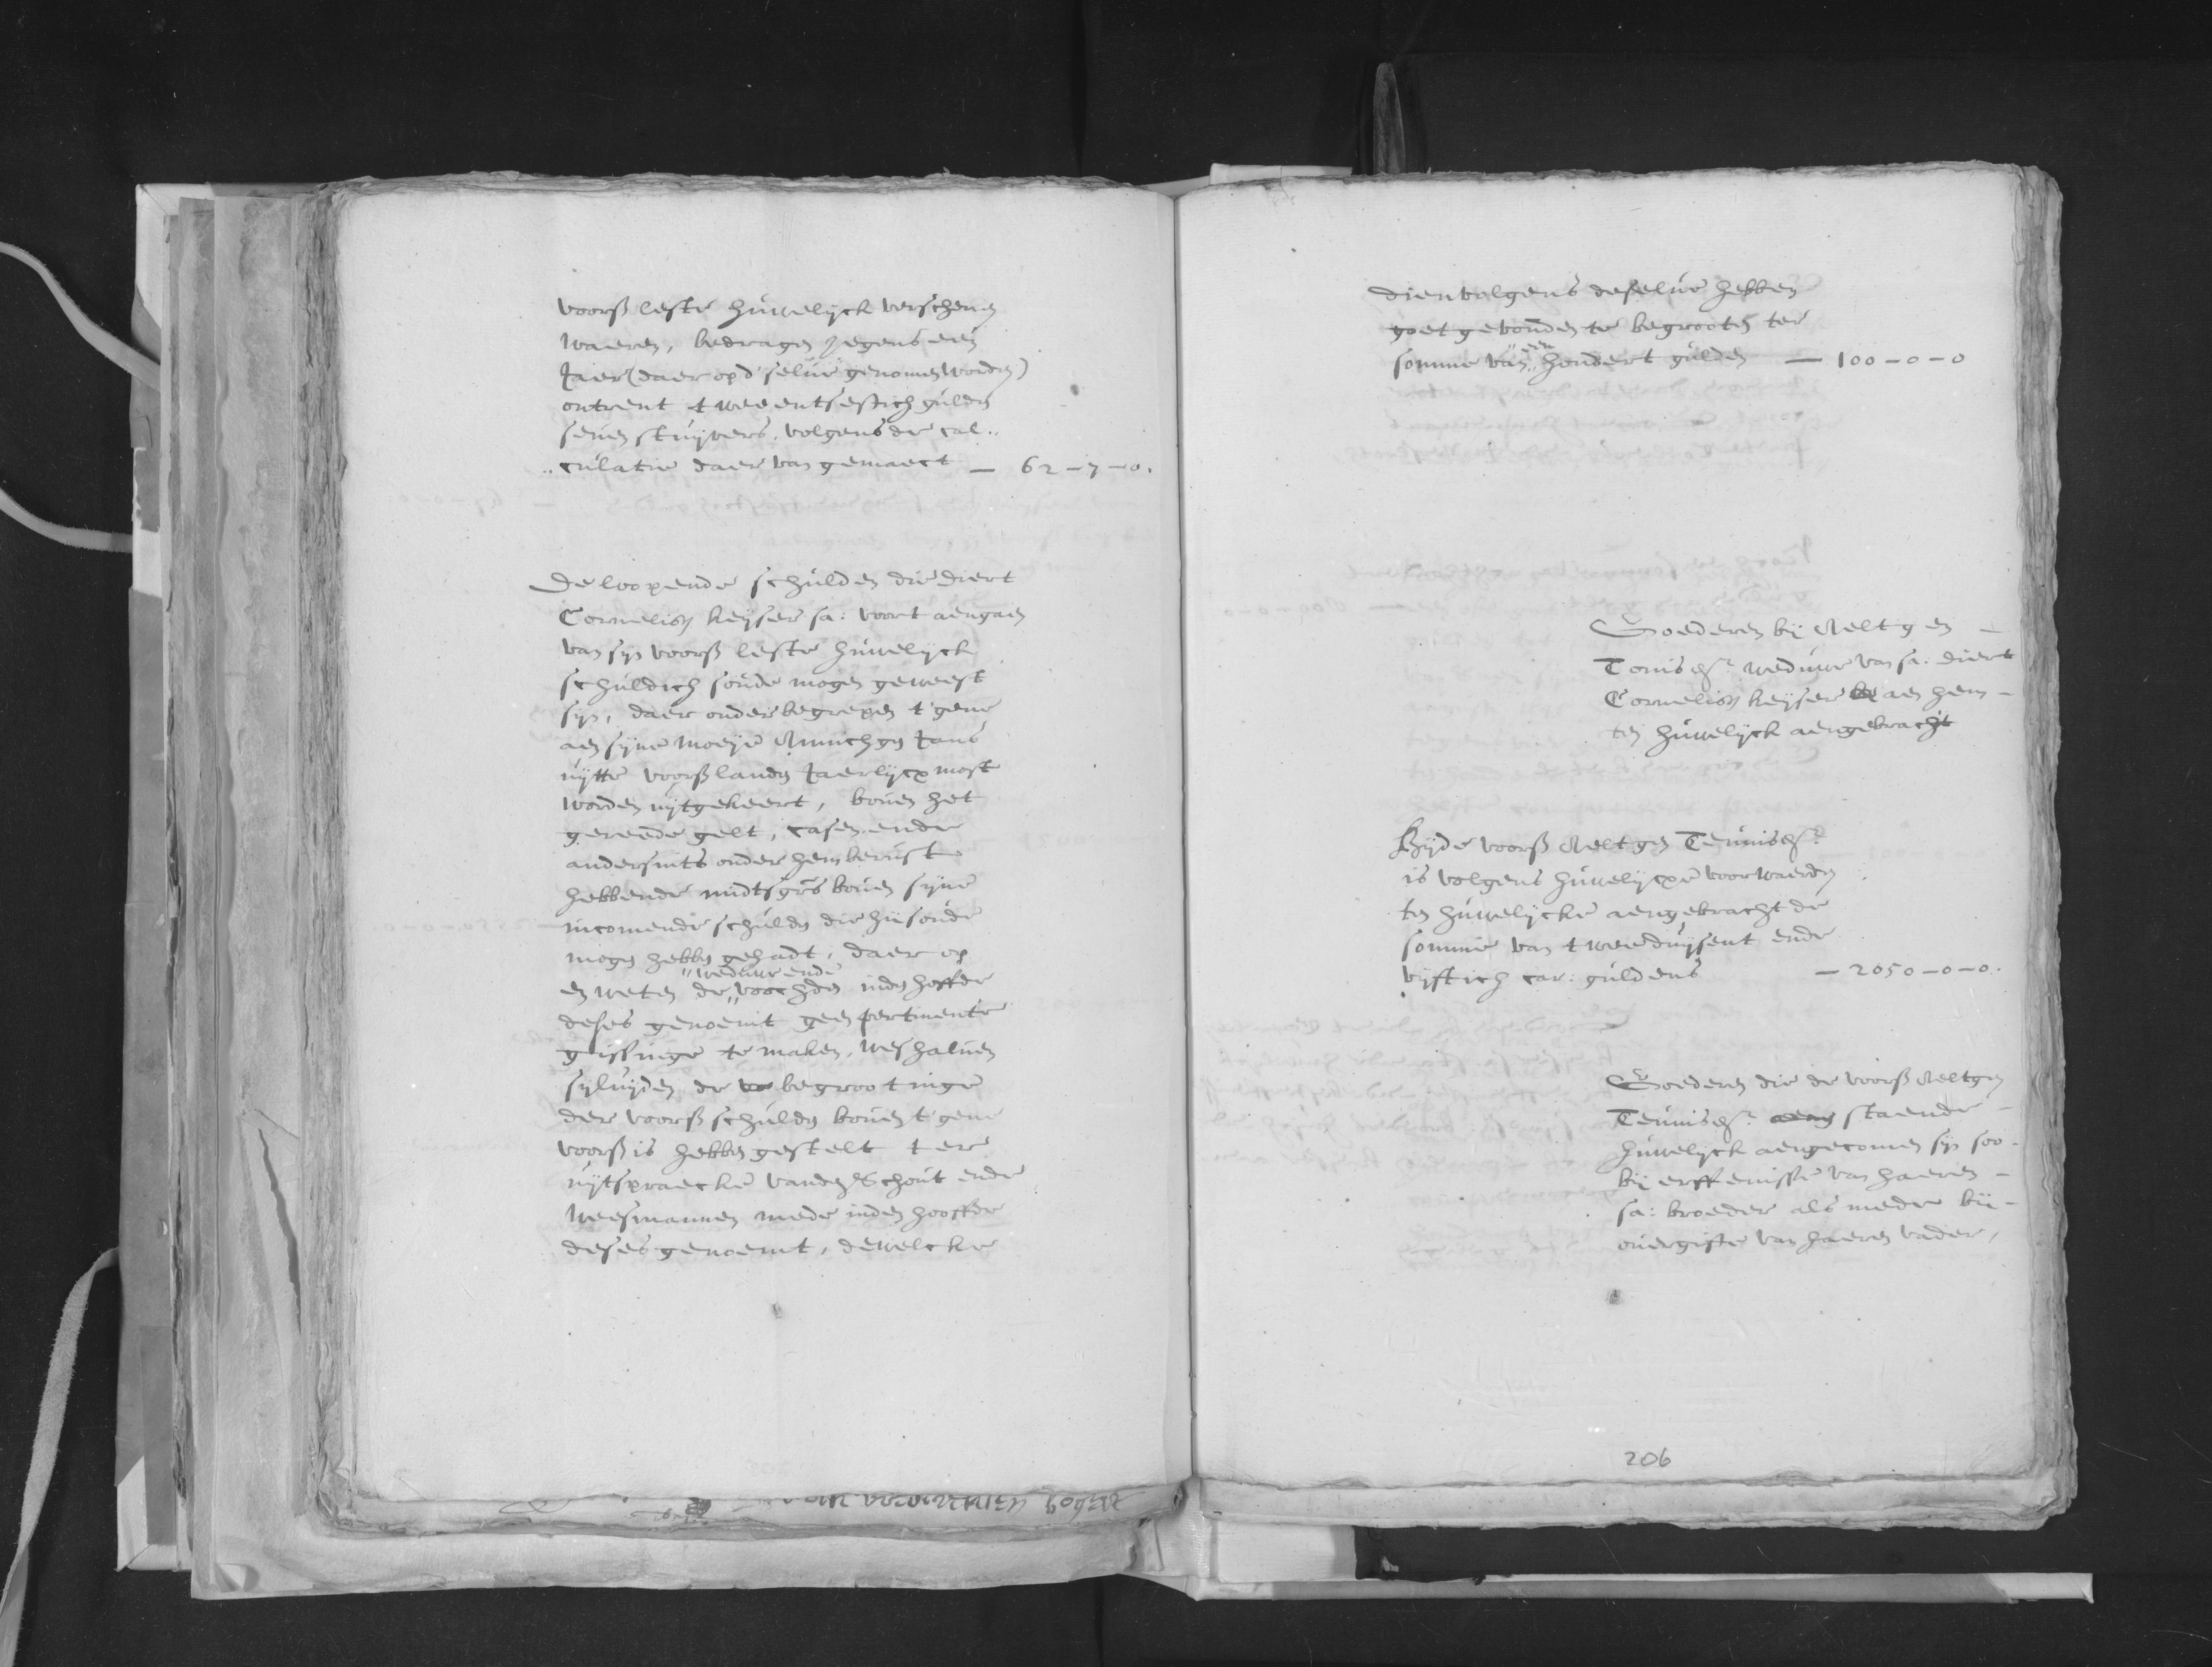 voorss leste huwelijck verschenen
waeren, bedragen jegens een
Jaer (daer op d'selve genomen worden)
ontrent tweeentsestich gulden
seven stuijvers, volgens de cal„
„culatie daer van gemaect — 62–7–0.
De loopende schulden die diert
Cornelisz keijser sa: voort aengaen
van sijn voorss leste huwelijck
schuldich soude mogen geweest
sijn, daer onder begrepen t'gene
aen sijne moeije Jans
uijtte voorss landen Jaerlijcx most
worden uijtgekeert, boven het
gereede gelt, casen ende
andersints onder hem berust
hebbende midtsgrs boven sijne
incomende schulden die hij soude
mogen hebben gehadt, daer op
en weten de „weduwe ende„ voochden inden hoffde
deses genoemt geen pertinente
gissinge te maken, weshalven
sijluijden de begrootinge
der voorss schulden boven t'gene
voorss is hebben gestelt ter
uijtspraecke vanden Schout ende
Weesmannen mede inden hooffde
deses genoemt, dewelcke
dienvolgens deselve hebben
goet gevonden te begrooten ter
somme van „een„ hondert gulden — 100–0–0
Goederen bij Aeltgen –
Tonisdr. weduwe van sa. diert
Cornelisz keijser aen hem –
ten huwelijck aengebracht
Bijde voorss Aeltgen Teunisdr.
is volgens huwelijcxe voorwaerden
ten huwelijcke aengebracht de
somme van tweeduijsent ende
vijftich car: guldens — 2050–0–0.
Goederen die de voorss Aeltgen
Teunisdr. staende –
huwelijck aengecomen sijn soo –
bij erffenisse van haeren –
sa: broeder als mede bij –
overgifte van haeren vader,
206